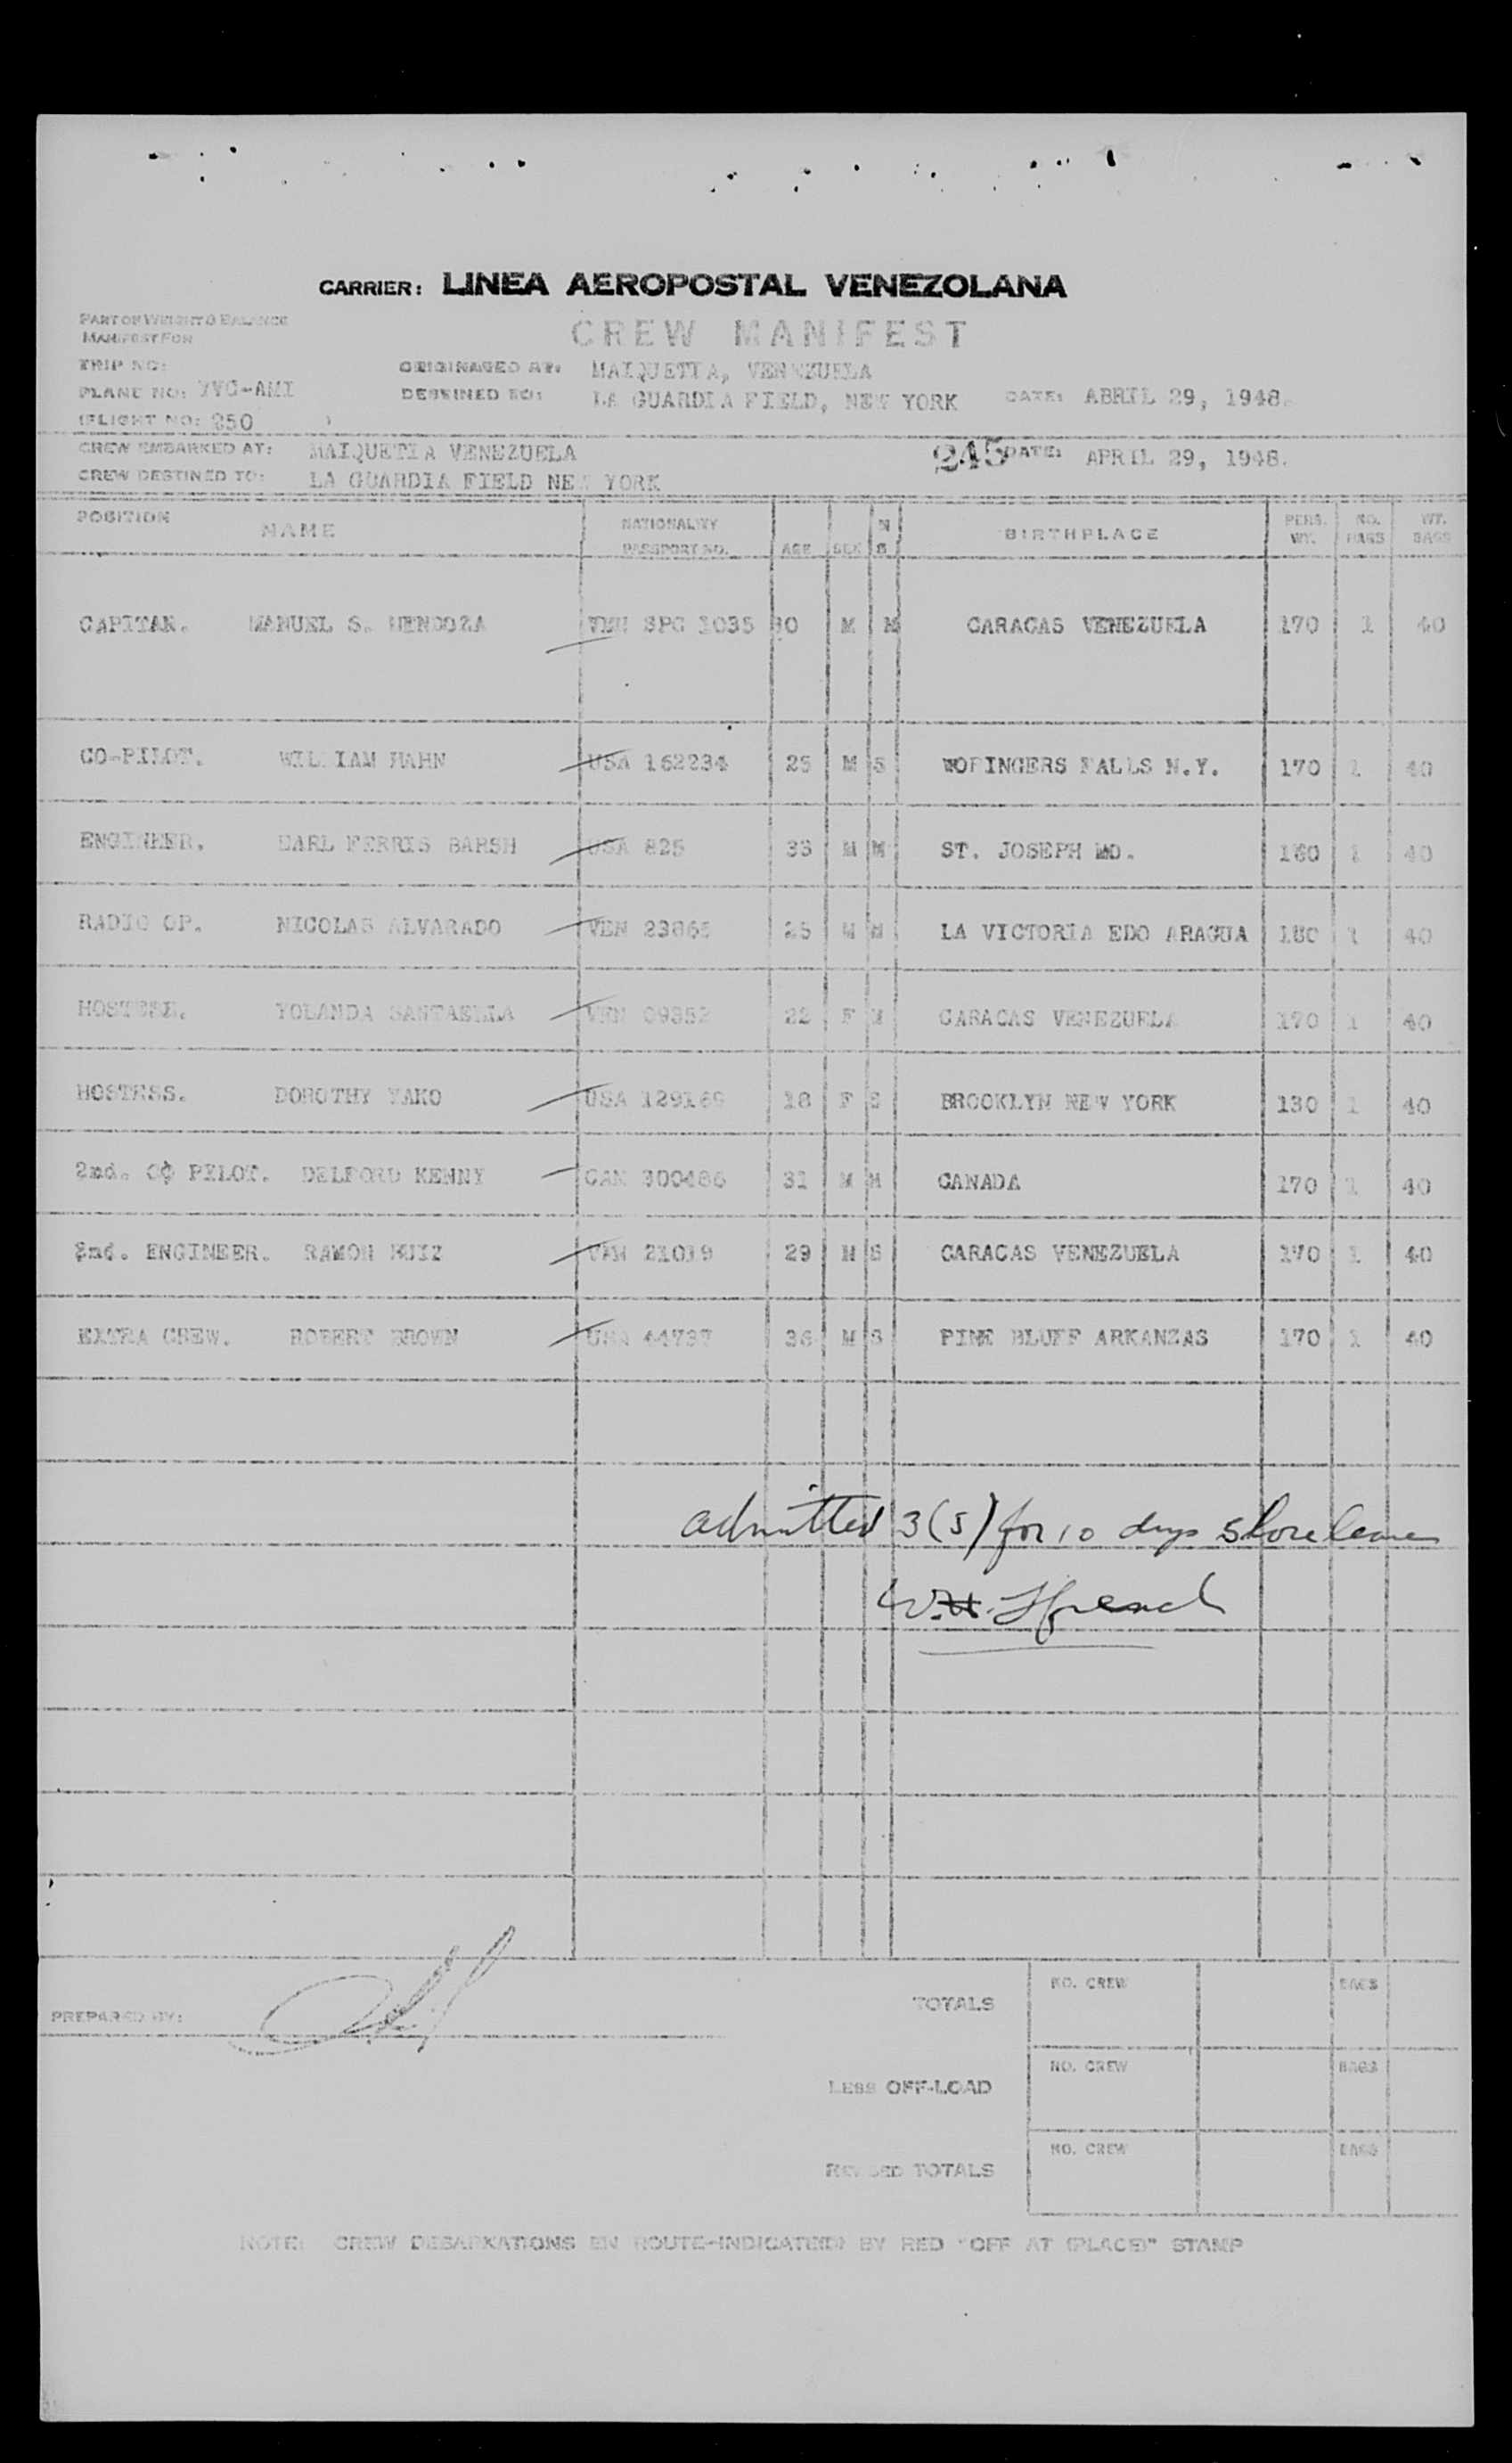 CARRIER: LINEA AEROPOSTAL VENEZOLANA
PART OF WEIGHT & BALANCE
MANIFEST FOR
CREW MANIFEST
TRIP NO:
ORIGINATED AT: MAIQUETIA, VENEZUELA
PLANE NO: YVC-AMI
DESTINED TO: LA GUARDIA FIELD, NEW YORK DATE: ABRIL 29, 1948.
(FLIGHT NO: 250 )
CREW EMBARKED AT: MAIQUETIA VENEZUELA 245 DATE: APRIL 29, 1948.
CREW DESTINED TO: LA GUARDIA FIELD NEW YORK
POSITION NAME NATIONALITY PASSPORT NO. AGE SEX M S BIRTHPLACE PERS. WT. NO. BAGS WT. BAGS
CAPITAN. MANUEL S. MENDOZA VEN SPC 1035 30 M M CARACAS VENEZUELA 170 1 40
CO-PILOT. WILLIAM HAHN USA 162234 25 M S WOPINGERS FALLS N.Y. 170 1 40
ENGINEER. EARL FERRIS BARSH USA 825 36 M M ST. JOSEPH MO. 160 1 40
RADIO OP. NICOLAS ALVARADO VEN 23865 25 M M LA VICTORIA EDO ARAGUA 180 1 40
HOSTESS. YOLANDA SANTAELLA VEN 09352 22 F M CARACAS VENEZUELA 170 1 40
HOSTESS. DOROTHY YAKO USA 129169 18 F S BROOKLYN NEW YORK 130 1 40
2nd. CO PILOT. DELFORD KENNY CAN 300486 31 M M CANADA 170 1 40
2nd. ENGINEER. RAMON RUIZ VEN 21019 29 M S CARACAS VENEZUELA 170 1 40
EXTRA CREW. ROBERT BROWN USA 44737 36 M S PINE BLUFF ARKANZAS 170 1 40
admitted 3(5) for 10 days shore leave
W.H.
PREPARED BY:
TOTALS NO. CREW BAGS
LESS OFF-LOAD NO. CREW BAGS
REVISED TOTALS NO. CREW BAGS
NOTE: CREW DEBARKATIONS EN ROUTE-INDICATED BY RED "OFF AT (PLACE)" STAMP